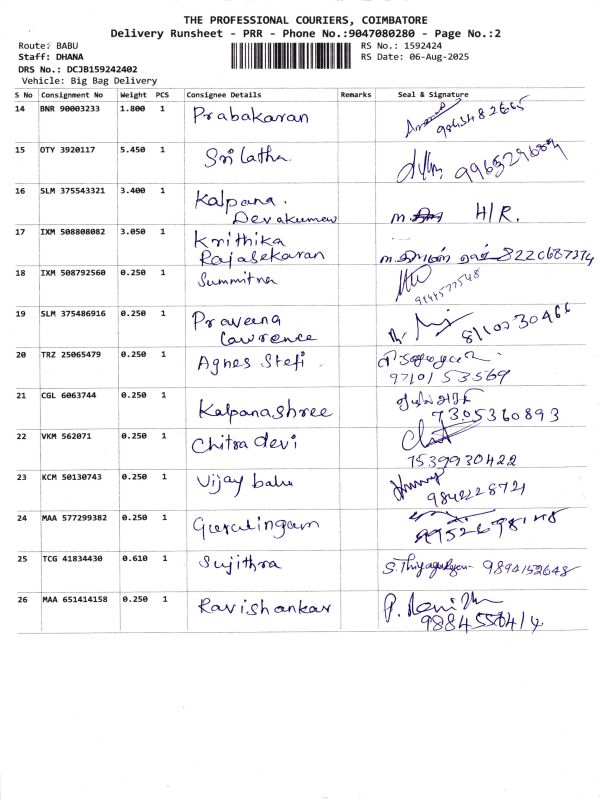 THE PROFESSIONAL COURIERS, COIMBATORE
Delivery Runsheet - PRR - Phone No.:9047080280 - Page No.:2
Route: BABU RS No.: 1592424
Staff: DHANA RS Date: 06-Aug-2025
DRS No.: DCJB159242402
Vehicle: Big Bag Delivery
S No Consignment No Weight PCS Consignee Details Remarks Seal & Signature
14 BNR 90003233 1.800 1 Prabakaran
15 OTY 3920117 5.450 1 Sri Latha.
16 SLM 375543321 3.400 1 Kalpana. H/R.
Devakumar
17 IXM 508808082 3.050 1 Krithika
Rajasekaran
18 IXM 508792560 0.250 1 Summitna
9144577548
19 SLM 375486916 0.250 1 Praveena
Lawrence 8110730466
20 TRZ 25065479 0.250 1 Agnes Stefi.
9710153569
21 CGL 6063744 0.250 1 Kalpanashree
7305360893
22 VKM 562071 0.250 1 Chitra devi
7539930422
23 KCM 50130743 0.250 1 Vijay babu
9842228721
24 MAA 577299382 0.250 1 Gurulingam
25 TCG 41834430 0.610 1 Sujithra 9894152648
26 MAA 651414158 0.250 1 Ravishankar